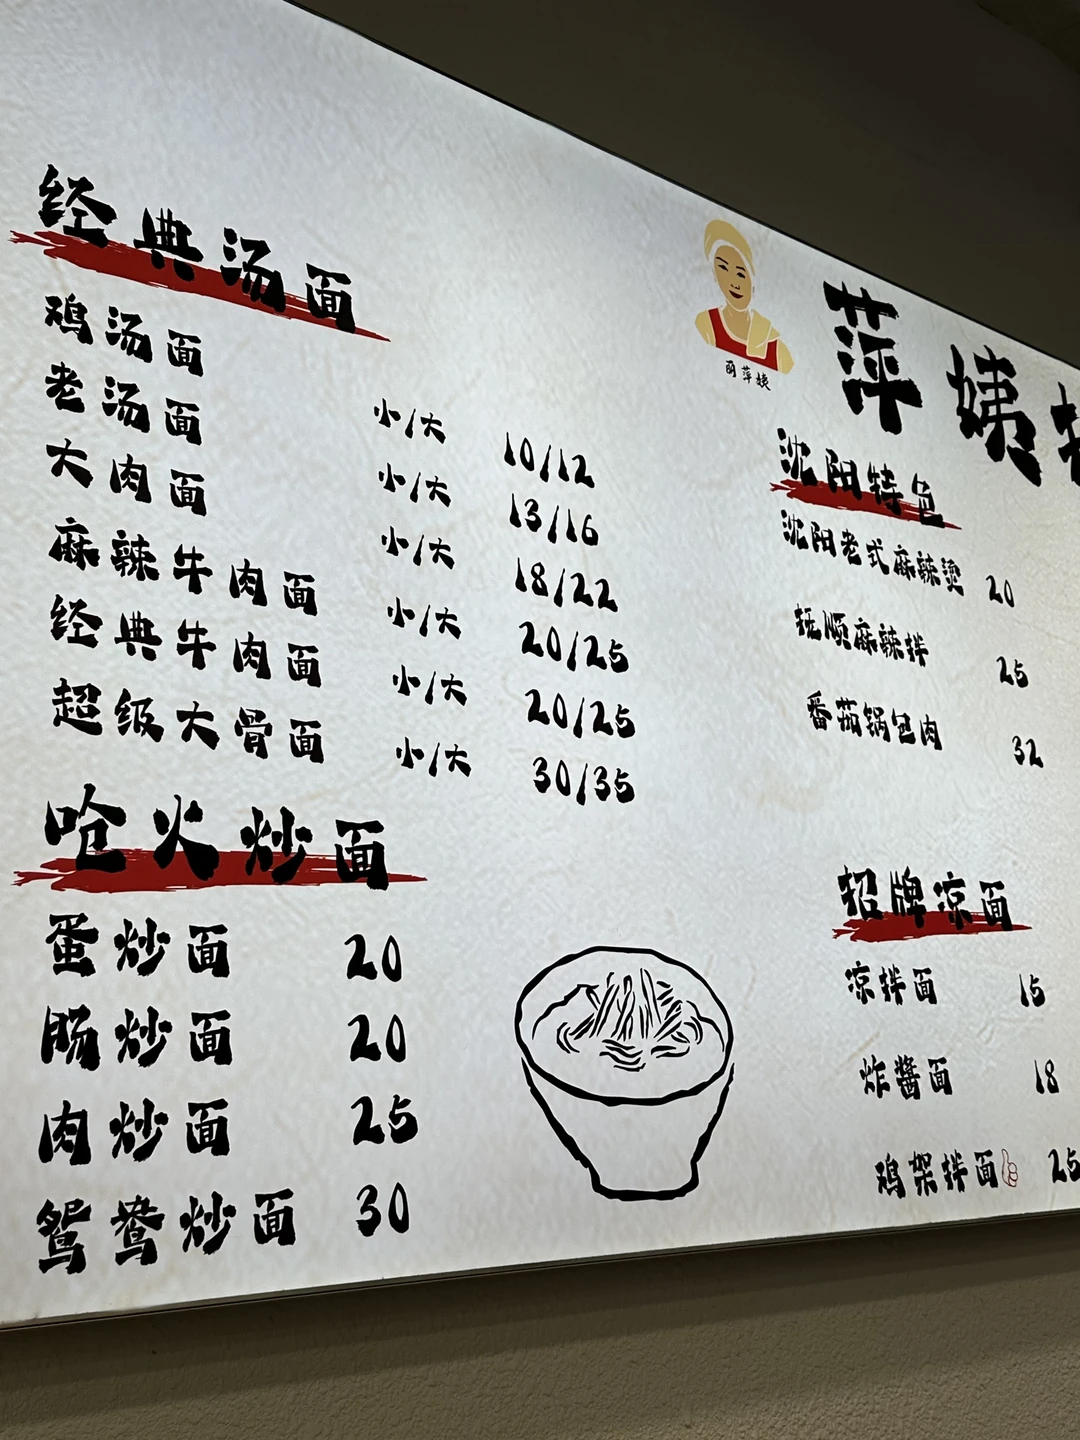 经典汤面
鸡汤面 小/大 10/12
老汤面 小/大 13/16
大肉面 小/大 18/22
麻辣牛肉面 小/大 20/25
经典牛肉面 小/大 20/25
超级大骨面 小/大 30/35
呛火炒面
蛋炒面 20
肠炒面 20
肉炒面 25
鸳鸯炒面 30
丽萍姨
萍姨
沈阳特色
沈阳老式麻辣烫 20
抚顺麻辣拌 25
番茄锅包肉 32
招牌凉面
凉拌面 15
炸酱面 18
鸡架拌面 25